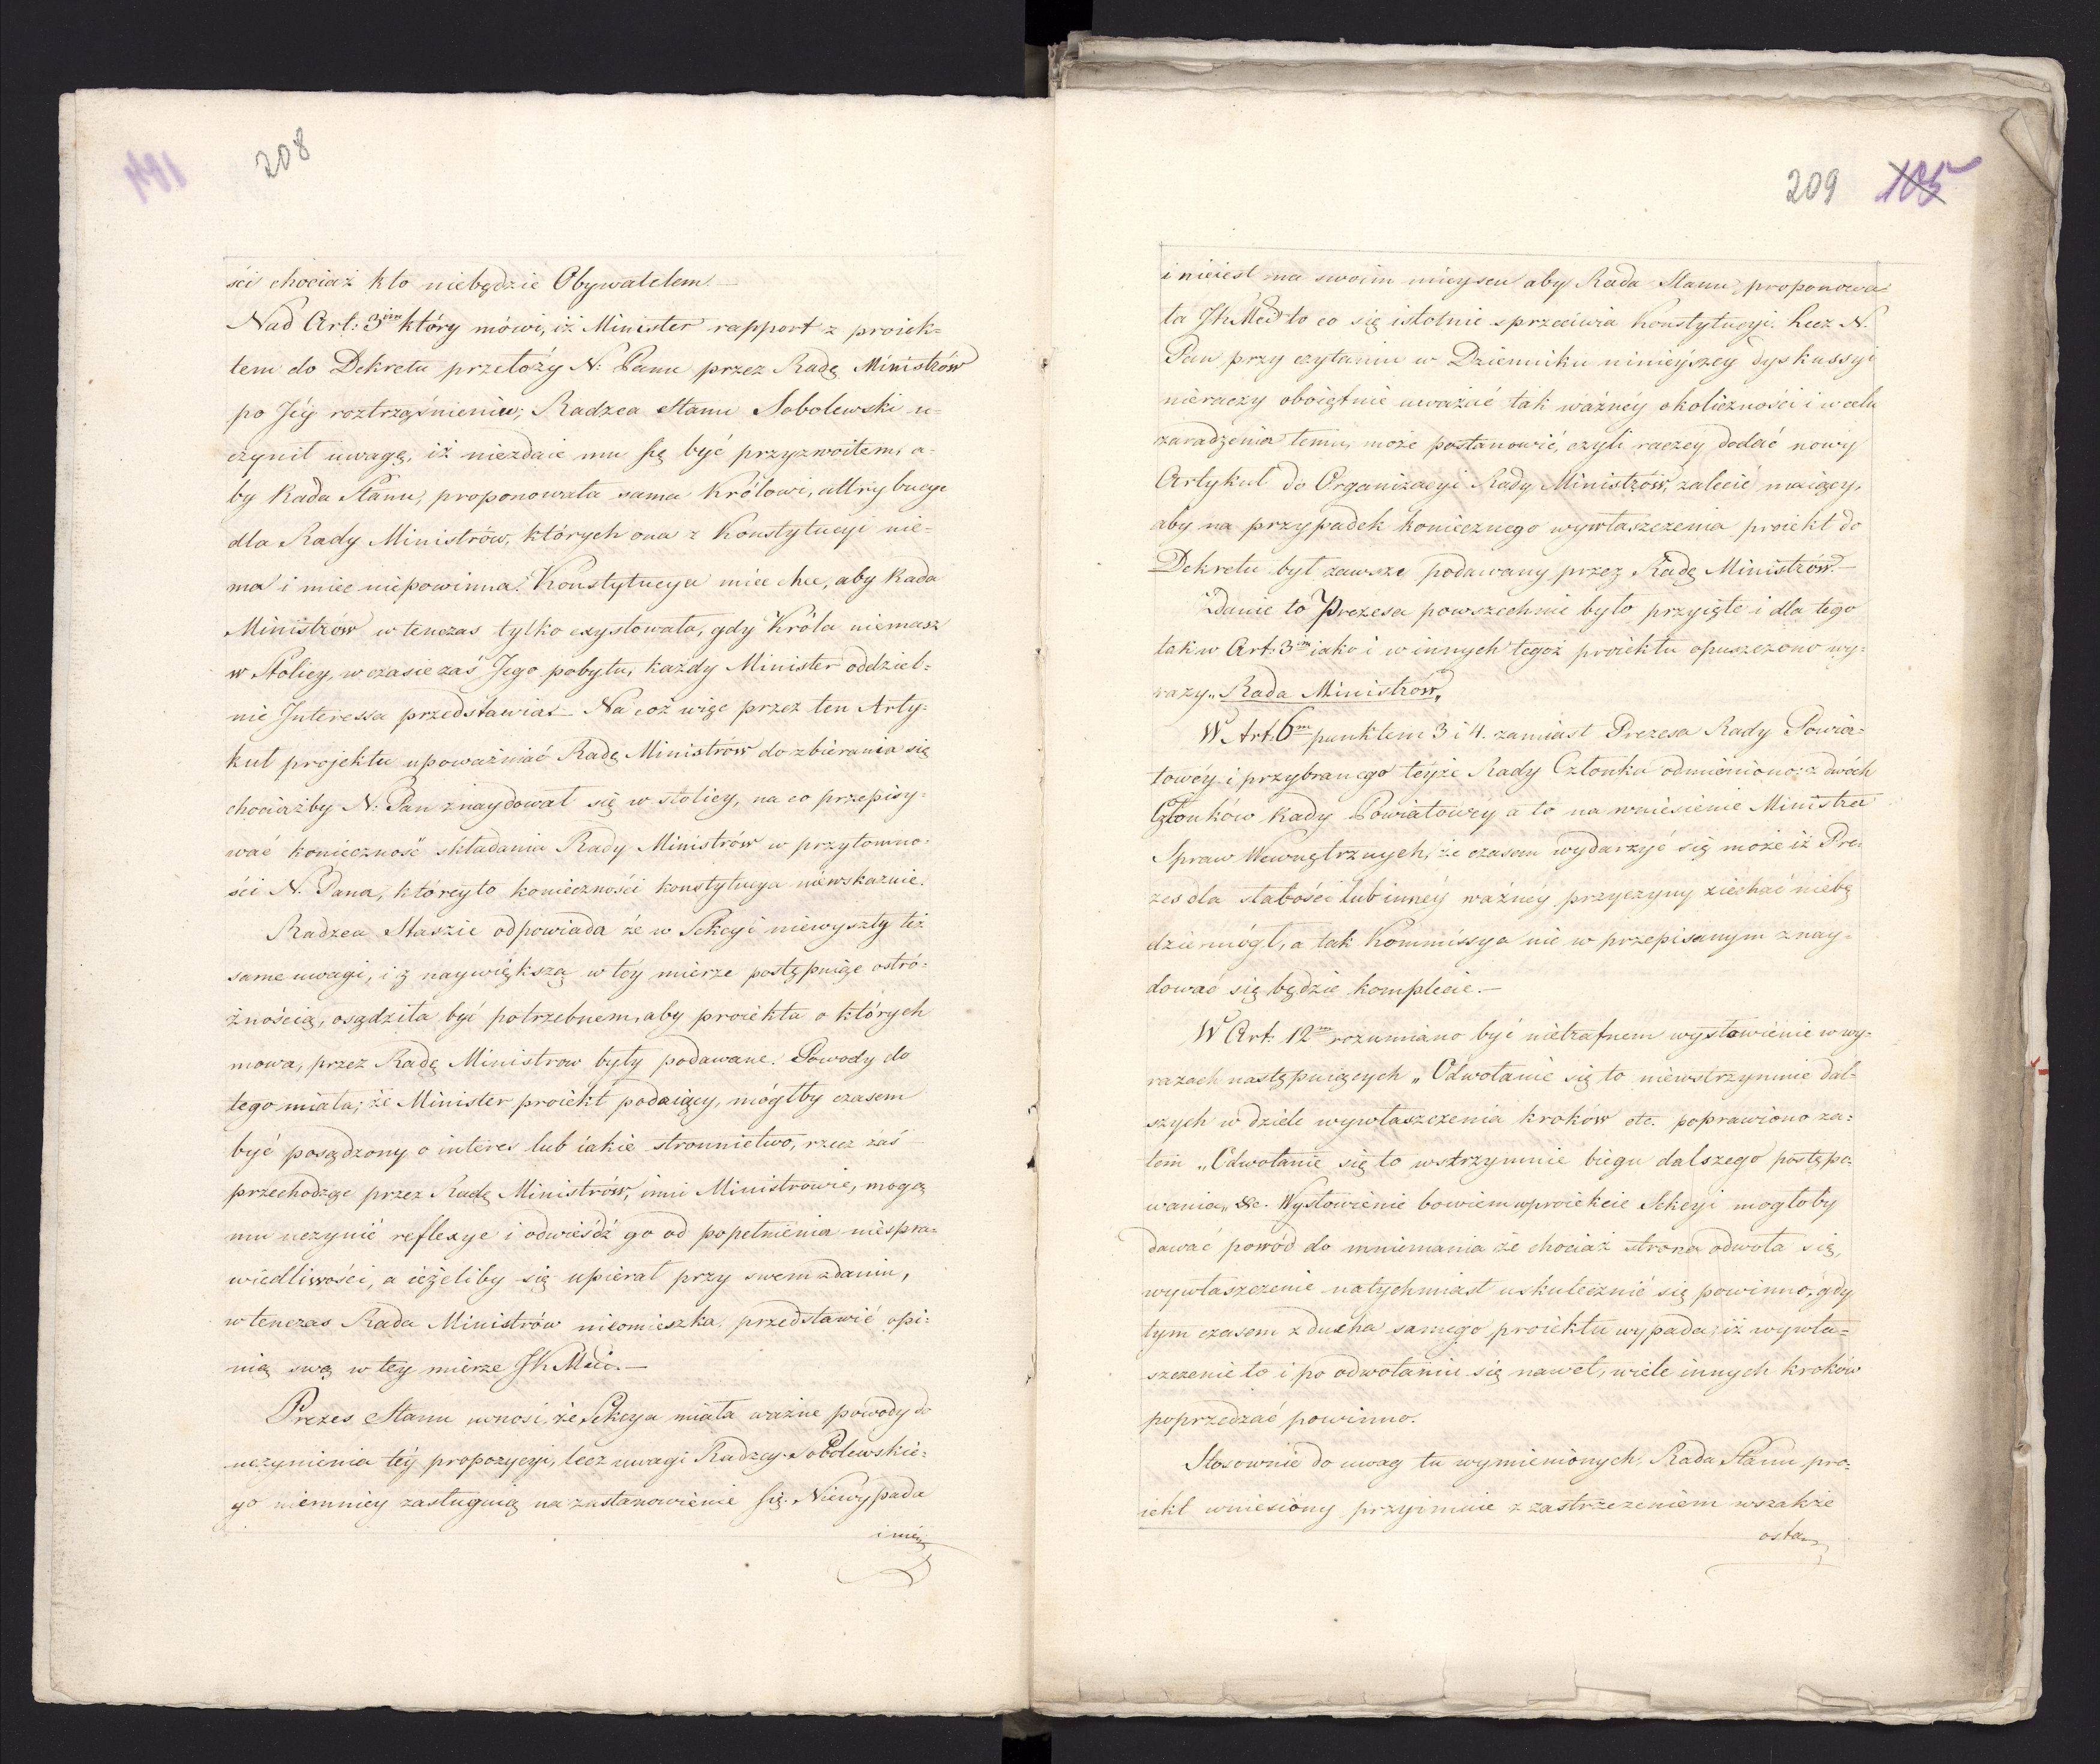 208
ści chociaż kto niebędzie Obywatelem.—
Nad Art: 3im który mówi, iż Minister rapport z proiek=
tem do Dekretu przełoży N: Panu przez Radę Ministrów
po Jéy roztrząśnieniu; Radzca Stanu Sobolewski u=
czynił uwagę, iż niezdaie mu się być przyzwoitem, a=
by Rada Stanu, proponowała sama Królowi, attrybucye
dla Rady Ministrów, których ona z Konstytucyi nie=
ma i miec niepowinna. Konstytucya miec chce, aby Rada
Ministrów w tenczas tylko exystowała, gdy Króla niemasz
w Stolicy, w czasie zaś Jego pobytu, każdy Minister oddziel=
nie Interessa przedstawiał. Na coż więc przez ten Arty=
kuł projektu upoważniać Radę Ministrów do zbierania się
chociażby N: Pan znaydował się w stolicy, na co przepisy=
wać konieczność składania Rady Ministrów w przytomno=
ści N. Pana, któreyto konieczności konstytucya niewskazuie.
Radzca Staszic odpowiada że w Sekcyi niewyszły też
same uwagi, i z naywiększą w téy mierze postępuiąc ostró=
żnością, osądziła być potrzebnem, aby proiekta o których
mowa, przez Radę Ministrow były podawane. Powody do
tego miała; że Minister proiekt podaiący, mógłby czasem
być posądzony o interes lub iakie stronnictwo, rzecz zaś
przechodząc przez Radę Ministrów, inni Ministrowie, mogą
mu uczynić reflexye i odwieśdź go od popełnienia niespra=
wiedliwości, a ieżeliby się upierał przy swem zdaniu,
w tenczas Rada Ministrów nieomieszka przedstawić opi=
nią swą w tey mierze JK Mci.—
Prezes Stanu wnosi, że Sekcya miała ważne powody do
uczynienia téy propozycyi, lecz uwagi Radzcy Sobolewskie=
go niemniey zasługuią na zastanowienie się. Niewypada
i nie
209 105
i nieiest na swoim mieyscu aby Rada Stanu proponowa
ła JK Mci to co się istotnie sprzeciwia Konstytucyi. Lecz N.
Pan przy czytaniu w Dzienniku ninieyszey dyskussyi
nieraczy oboiętnie uważać tak ważnéy okoliczności i w celu
zaradzenia temu, może postanowić, czyli raczey dodać nowy
Artykuł do Organizacyi Rady Ministrów, zalecić maiący,
aby na przypadek koniecznego wywłaszczenia proiekt do
Dekretu był zawsze podawany przez Radę Ministrów.—
Zdanie to Prezesa powszechnie było przyięte i dla tego
tak w Art: 3im iako i w innych tegoż proiektu opuszczono wy=
razy „Rada Ministrów„
W Art: 6m punktem 3 i 4. zamiast Prezesa Rady Powia=
towéy i przybranego téyże Rady Członka odmieniono: z dwóch
Członków Rady Powiatowey a to na wniesienie Ministra
Spraw Wewnętrznych, że czasem wydarzyć się może iż Pre=
zes dla słabości lub innéy ważnéy przyczyny ziechać niebę
dzie mógł, a tak Kommissya nie w przepisanym znay=
dować się będzie komplecie.—
W Art: 12m rozumiano być nietrafnem wysłowienie w wy=
razach następuiących „Odwołanie się to niewstrzymuie dal=
szych w dziele wywłaszczenia kroków etc. poprawiono za=
tem „Odwołanie się to wstrzymuie biegu dalszego postępo=
wania„ &c. Wysłowienie bowiem w proiekcie Sekcyi mogłoby
dawać powód do mniemania że chociaż strona odwoła się,
wywłaszczenie natychmiast uskutecznić się powinno, gdy
tym czasem z ducha samego proiektu wypada, iż wywła=
szczenie to i po odwołaniu się nawet, wiele innych kroków
poprzedzać powinno.
Stosownie do uwag tu wymienionych, Rada Stanu pro=
iekt wniesiony przyimuie z zastrzeżeniem wszakże
osta